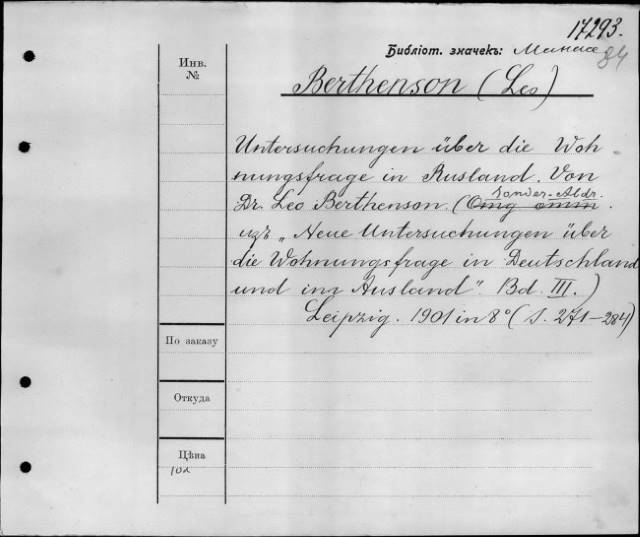 17293.
Библіот. значекъ:
84
Инв.
№
Berthenson (Leo)
Untersuchungen über die Woh-
nungsfrage in Rusland. Von
Sonder-Abdr.
Dr. Leo Berthenson. (
изъ „Neue Untersuchungen über
die Wohnungsfrage in Deutschland
und im Ausland“. Bd. III.)
Leipzig. 1901 in 8° (S. 271–284)
По заказу
Откуда
Цѣна